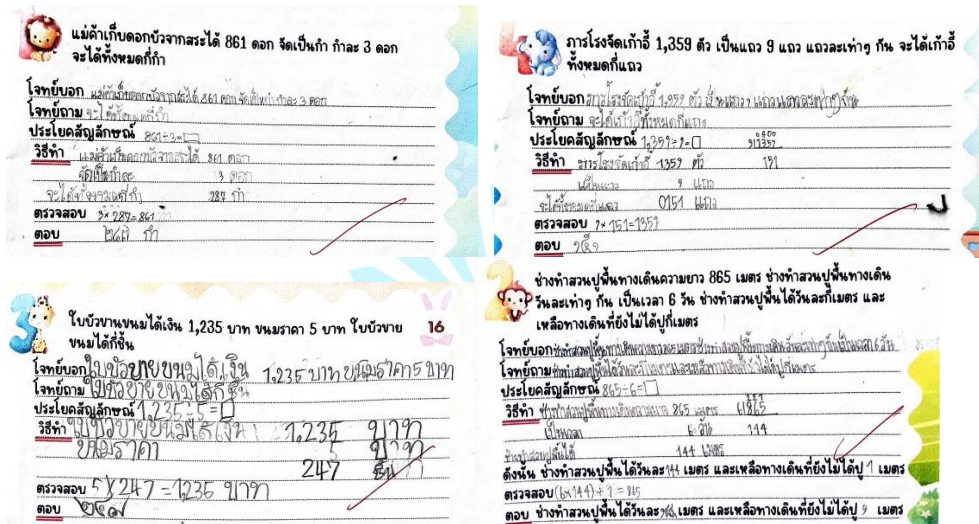 แม่ค้าเก็บดอกบัวจากสระได้ 861 ดอก จัดเป็นกำ กำละ 3 ดอก
จะได้ทั้งหมดกี่กำ
โจทย์บอก แม่ค้าเก็บดอกบัวจากสระได้ 861 ดอก จัดเป็นกำ กำละ 3 ดอก
โจทย์ถาม จะได้ทั้งหมดกี่กำ
ประโยคสัญลักษณ์ 861÷3=□
วิธีทำ แม่ค้าเก็บดอกบัวจากสระได้ 861 ดอก
จัดเป็นกำละ 3 ดอก
จะได้ทั้งหมด 287 กำ
ตรวจสอบ 3×287=861
ตอบ กำ
ภารโรงจัดเก้าอี้ 1,359 ตัว เป็นแถว 9 แถว แถวละเท่าๆ กัน จะได้เก้าอี้
ทั้งหมดกี่แถว
โจทย์บอก ภารโรงจัดเก้าอี้ 1,359 ตัว เป็นแถว 9 แถว แถวละเท่าๆ กัน
โจทย์ถาม จะได้เก้าอี้ทั้งหมดกี่แถว
ประโยคสัญลักษณ์ 1,359÷9=□
วิธีทำ ภารโรงจัดเก้าอี้ 1359 ตัว 151
เป็นแถว 9 แถว
0151 แถว
ตรวจสอบ 9×151=1359
ตอบ
ใบบัวขานขนมได้เงิน 1,235 บาท ขนมราคา 5 บาท ใบบัวขาย 16
ขนมได้กี่ชิ้น
โจทย์บอก ใบบัวขายขนมได้เงิน 1,235 บาท ขนมราคา 5 บาท
โจทย์ถาม ใบบัวขายขนมได้กี่ชิ้น
ประโยคสัญลักษณ์ 1,235÷5=□
วิธีทำ ใบบัวขายขนมได้เงิน 1,235 บาท
ขนมราคา 5 บาท
247 ชิ้น
ตรวจสอบ 5×247=1235 บาท
ตอบ ๒๔๗
ช่างทำสวนปูพื้นทางเดินความยาว 865 เมตร ช่างทำสวนปูพื้นทางเดิน
วันละเท่าๆ กัน เป็นเวลา 6 วัน ช่างทำสวนปูพื้นได้วันละกี่เมตร และ
เหลือทางเดินที่ยังไม่ได้ปูกี่เมตร
โจทย์บอก
โจทย์ถาม
ประโยคสัญลักษณ์ 865÷6=□
วิธีทำ ช่างทำสวนปูพื้นทางเดินความยาว 865 เมตร 6)865
เป็นเวลา 6 วัน 144
ช่างทำสวนปูพื้นได้ 144 เมตร
ดังนั้น ช่างทำสวนปูพื้นได้วันละ 144 เมตร และเหลือทางเดินที่ยังไม่ได้ปู 1 เมตร
ตรวจสอบ (6×144)+1=865
ตอบ ช่างทำสวนปูพื้นได้วันละ เมตร และเหลือทางเดินที่ยังไม่ได้ปู เมตร